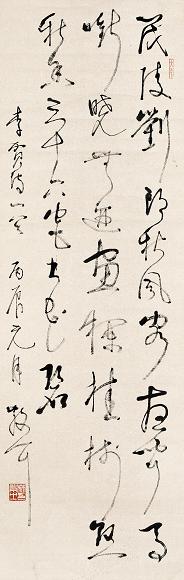 茂陵劉郎秋風客夜聞馬
嘶曉無迹畫欄桂樹懸
秋香三十六宮土花碧
李賀詩 丙辰元月 散耳